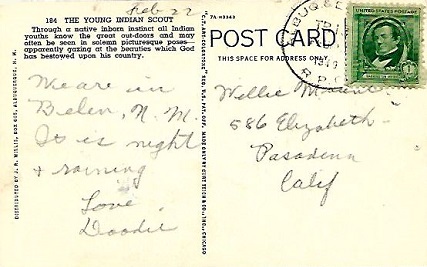 Feb 22
184 THE YOUNG INDIAN SCOUT
Through a native inborn instinct all Indian
Youths know the great out-doors and may
often be seen in solemn picturesque poses—
apparently gazing at the beauties which God
has bestowed upon his country.
We are in
Belen, N. M.
It is night
& raining
Love
Doodie
DISTRIBUTED BY J. R. WILLIS, BOX 665, ALBUQUERQUE, N. M.
"C.T. ART-COLORTONE" REG. U.S. PAT. OFF. MADE ONLY BY CURT TEICH & CO., INC., CHICAGO
7A-H3343
POST CARD
THIS SPACE FOR ADDRESS ONLY
R.P.O.
UNITED STATES POSTAGE
1
Willie
586 Elizabeth
Pasadena
Calif